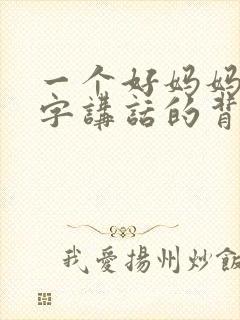 一个好妈妈
字講話的背
我愛揚州炒飯